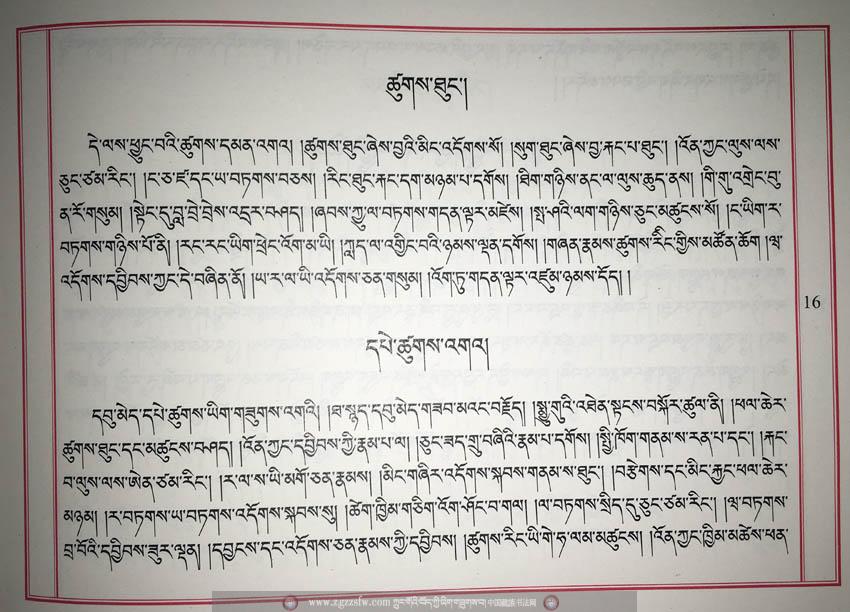 ཚུགས་ཐུང་།
དེ་ལས་ཕྱུང་བའི་ཚུགས་དམན་འགའ། །ཚུགས་ཐུང་ཞེས་བྱའི་མིང་འདོགས་སོ། །སུག་ཐུང་ཞེས་བྱ་རྐང་པ་ཐུང་། །འོན་ཀྱང་ལུས་ལས་
ཅུང་ཙམ་རིང་། །ང་ཅ་ཛ་དང་ཡ་བཏགས་བཅས། །རིང་ཐུང་རྐང་དག་མཉམ་པ་དགོས། །ཐིག་གཉིས་ནང་ལ་ལུས་ཆུད་ནས། །གི་གུ་འགྲེང་བུ་
ན་རོ་གསུམ། །སྟེང་དུ་བླ་བྲེ་བྲེས་འདྲར་བཤད། །ཞབས་ཀྱུ་ལ་བཏགས་གདན་ལྟར་མཛེས། །སྨ་ཤའི་ལག་གཉིས་ཅུང་མཚུངས་སོ། །ང་ཡིག་ར་
བཏགས་གཉིས་པོ་ནི། །རང་རང་ཡིག་ཕྲེང་འོག་མ་ཡི། །ཀླད་ལ་འགྱིང་བའི་ཉམས་ལྡན་དགོས། །གཞན་རྣམས་ཚུགས་རིང་གྱིས་མཚོན་ཆོག །ཝ་
འདོགས་དབྱིབས་ཀྱང་དེ་བཞིན་ནོ། །ཡ་ར་ལ་ཡི་འདོགས་ཅན་གསུམ། །འོག་ཏུ་གདན་ལྟར་འཛུམ་ཉམས་དོད། །
དཔེ་ཚུགས་འགའ།
དབུ་མེད་དཔེ་ཚུགས་ཡིག་གཟུགས་འགའི། །ཐ་སྙད་དབུ་མེད་གཟབ་མའང་བརྗོད། །སྨྱུ་གུའི་འཐེན་སྟངས་བསྐོར་ཚུལ་ནི། །ཕལ་ཆེར་
ཚུགས་ཐུང་དང་མཚུངས་བཤད། །འོན་ཀྱང་དབྱིབས་ཀྱི་རྣམ་པ་ལ། །ཅུང་ཟད་གྲུ་བཞིའི་རྣམ་པ་དགོས། །སྤྱི་ཁོག་གནམ་ས་རན་པ་དང་། །རྐང་
བ་ལུས་ལས་ཨེན་ཙམ་རིང་། །ར་ལ་ས་ཡི་མགོ་ཅན་རྣམས། །མིང་གཞིར་འདོགས་སྐབས་གནམ་ས་ཐུང་། །བརྩེགས་དང་མིང་རྐྱང་ཕལ་ཆེར་
མཉམ། །ར་བཏགས་ཡ་བཏགས་འདོགས་སྐབས་སུ། །ཚེག་ཁྱིམ་གཅིག་འོག་ཤོང་བ་གལ། །ལ་བཏགས་སྲིད་དུ་ཅུང་ཙམ་རིང་། །ཝ་བཏགས་
བྲ་བོའི་དབྱིབས་ཟུར་ལྡན། །དབྱངས་དང་འདོགས་ཅན་རྣམས་ཀྱི་དབྱིབས། །ཚུགས་རིང་ཡི་གེ་ཧ་ལམ་མཚུངས། །འོན་ཀྱང་ཁྱིམ་མཚེས་ཕན་
16
www.zgzzsfw.com ཀྲུང་གོའི་བོད་ཀྱི་ཡིག་གཟུགས་དྲ་བ། 中国藏族书法网